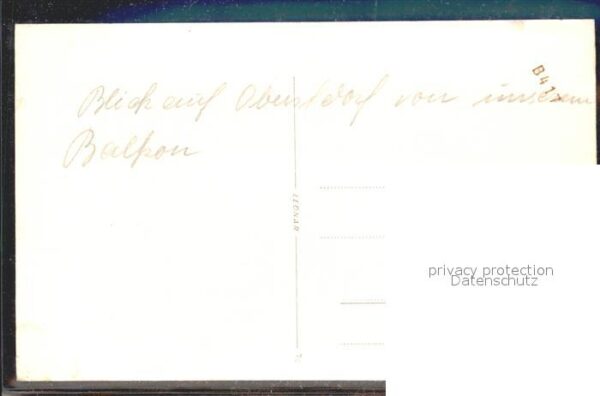 Blick auf Oberstdorf von unserem
Balkon
B41
LEONAR
privacy protection
Datenschutz